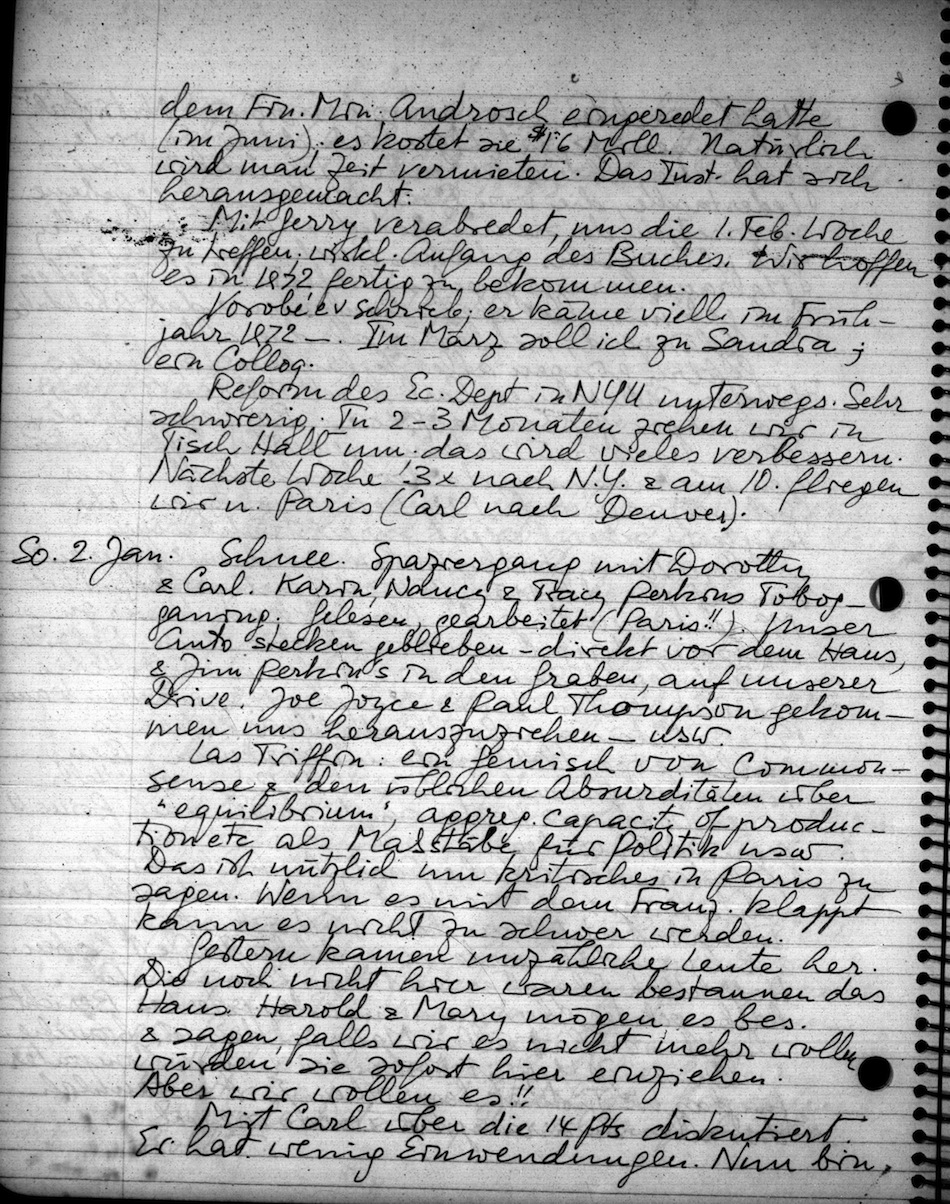 dem Fin. Min. Androsch eingeredet hatte
(im Juni); es kostet sie $16 Mill. Natürlich
wird man Zeit vermieten. Das Inst. hat sich
herausgemacht.
Mit Gerry verabredet, uns die 1. Feb. Woche
zu treffen. wirkl. Anfang des Buches. Wir hoffen
es in 1972 fertig zu bekommen.
Vorobév schrieb; er käme viell. im Früh-
jahr 1972 –. Im März soll ich zu Sandia;
ein Colloq.
Reform des Ec. Dept in NYU unterwegs. Sehr
schwierig. In 2–3 Monaten ziehen wir in
Tisch Hall um. das wird vieles verbessern.
Nächste Woche 3x nach N.Y. & am 10. fliegen
wir n. Paris (Carl nach Denver).
So. 2. Jan. Schnee. Spaziergang mit Dorothy
& Carl. Karin, Nancy & Tracy Perkins Tobog-
ganing. Gelesen, gearbeitet (Paris!!). Unser
Auto stecken geblieben – direkt vor dem Haus,
& Jim Perkin's in den Graben, auf unserer
Drive. Joe Joyce & Paul Thompson gekom-
men uns herauszuziehen – usw.
Las Triffin: ein Gemisch von Common-
sense & den üblichen Absurditäten über
"equilibrium", aggreg. capacity of produc-
tion etc als Masstäbe für Politik usw.
Das ist nützlich um kritisches in Paris zu
sagen. Wenn es mit dem Franz. klappt
kann es nicht zu schwer werden.
Gestern kamen unzählige Leute her.
Die noch nicht hier waren bestaunen das
Haus. Harold & Mary mögen es bes.
& sagen, falls wir es nicht mehr wollen
würden sie sofort hier einziehen.
Aber wir wollen es!!
Mit Carl über die 14 Pts diskutiert.
Er hat wenig Einwendungen. Nun bin,